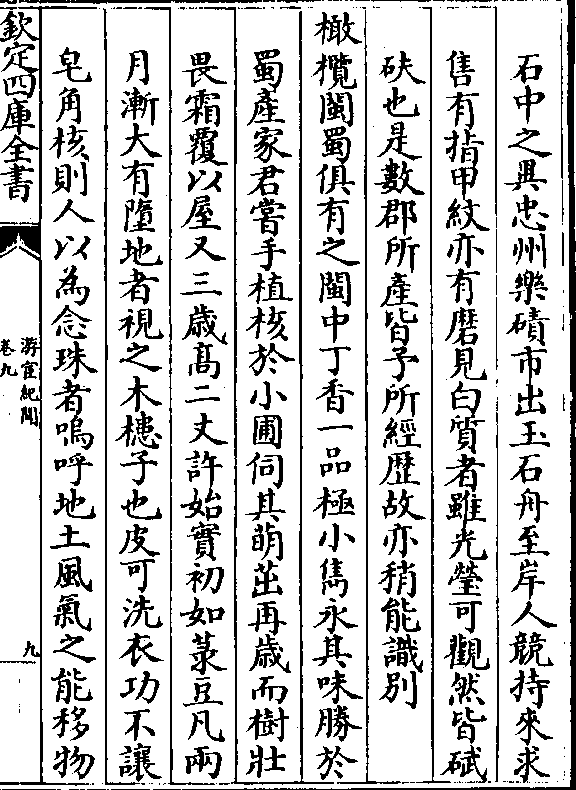 石中之異忠州樂磧市出玉石舟至岸人競持來求
售有指甲紋亦有磨見白質者雖光瑩可觀然皆碔
砆也是數郡所產皆予所經歷故亦稍能識别
橄欖閩蜀俱有之閩中丁香一品極小雋永其味勝於
蜀產家君嘗手植核於小圃伺其萌茁再歳而樹壯
畏霜覆以屋又三歳髙二丈許始實初如菉豆凡兩
月漸大有墮地者視之木槵子也皮可洗衣功不讓
皂角核則人以為念珠者嗚呼地土風氣之能移物
欽定四庫全書
游宦紀聞
卷九
九